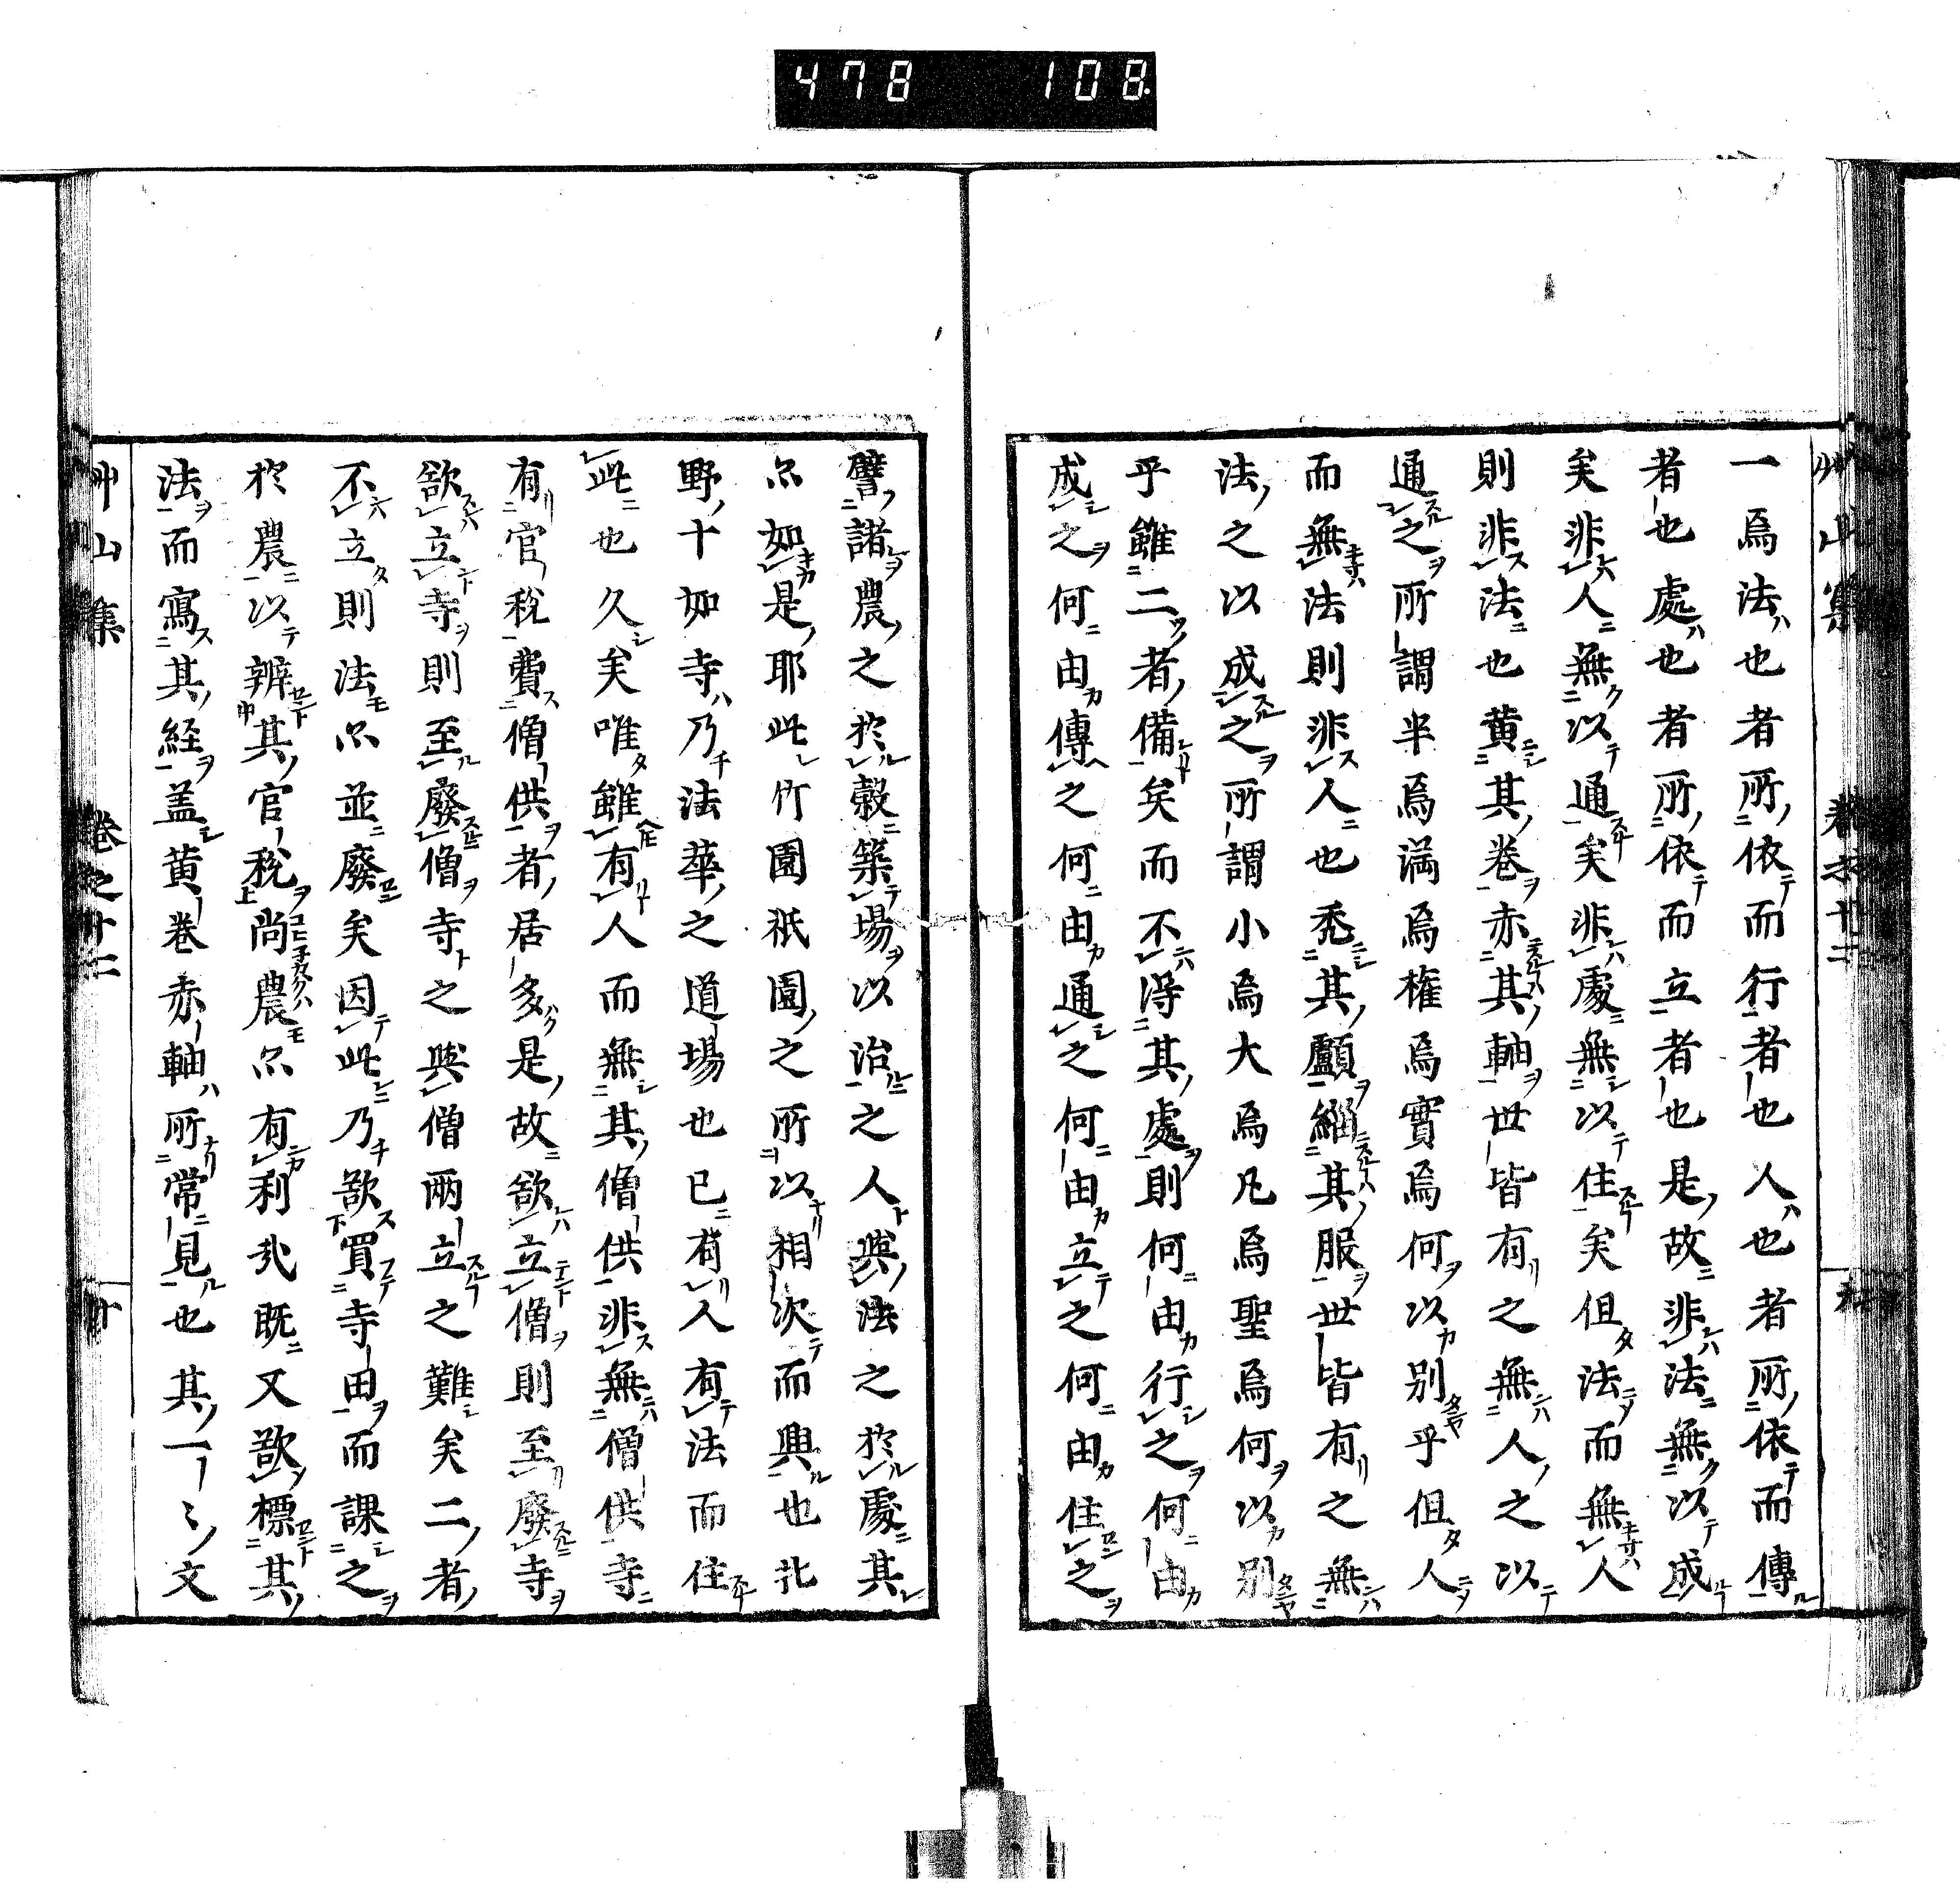 478 108
一爲法也者所依而行者也人也者所依而傳
者也處也者所依而立者也是故非法無以成
矣非人無以通矣非處無以住矣但法而無人
則非法也黄其卷赤其軸世皆有之無人之以
通之所謂半爲満爲権爲實爲何以別乎但人
而無法則非人也禿其顱緇其服世皆有之無
法之以成之所謂小爲大爲凡爲聖爲何以別
乎雖二者備矣而不得其處則何由行之何由
成之何由傳之何由通之何由立之何由住之
譬諸農之於穀築場以治之人與法之於處其
尓如是耶此竹園祇園之所以相次而興也北
野十如寺乃法華之道場也已有人有法而住
此也久矣唯雖有人而無其僧供非無僧供寺
有官税費僧供者居多是故欲立僧則至廢寺
欲立寺則至廢僧寺之與僧兩立之難矣二者
不立則法尓並廢矣因此乃欲買寺田而課之
於農以辨其官税尚農尓有利哉既又欲標其
法而寫其経盖黄卷赤軸所常見也其一一文
艸山集 卷之十二 十